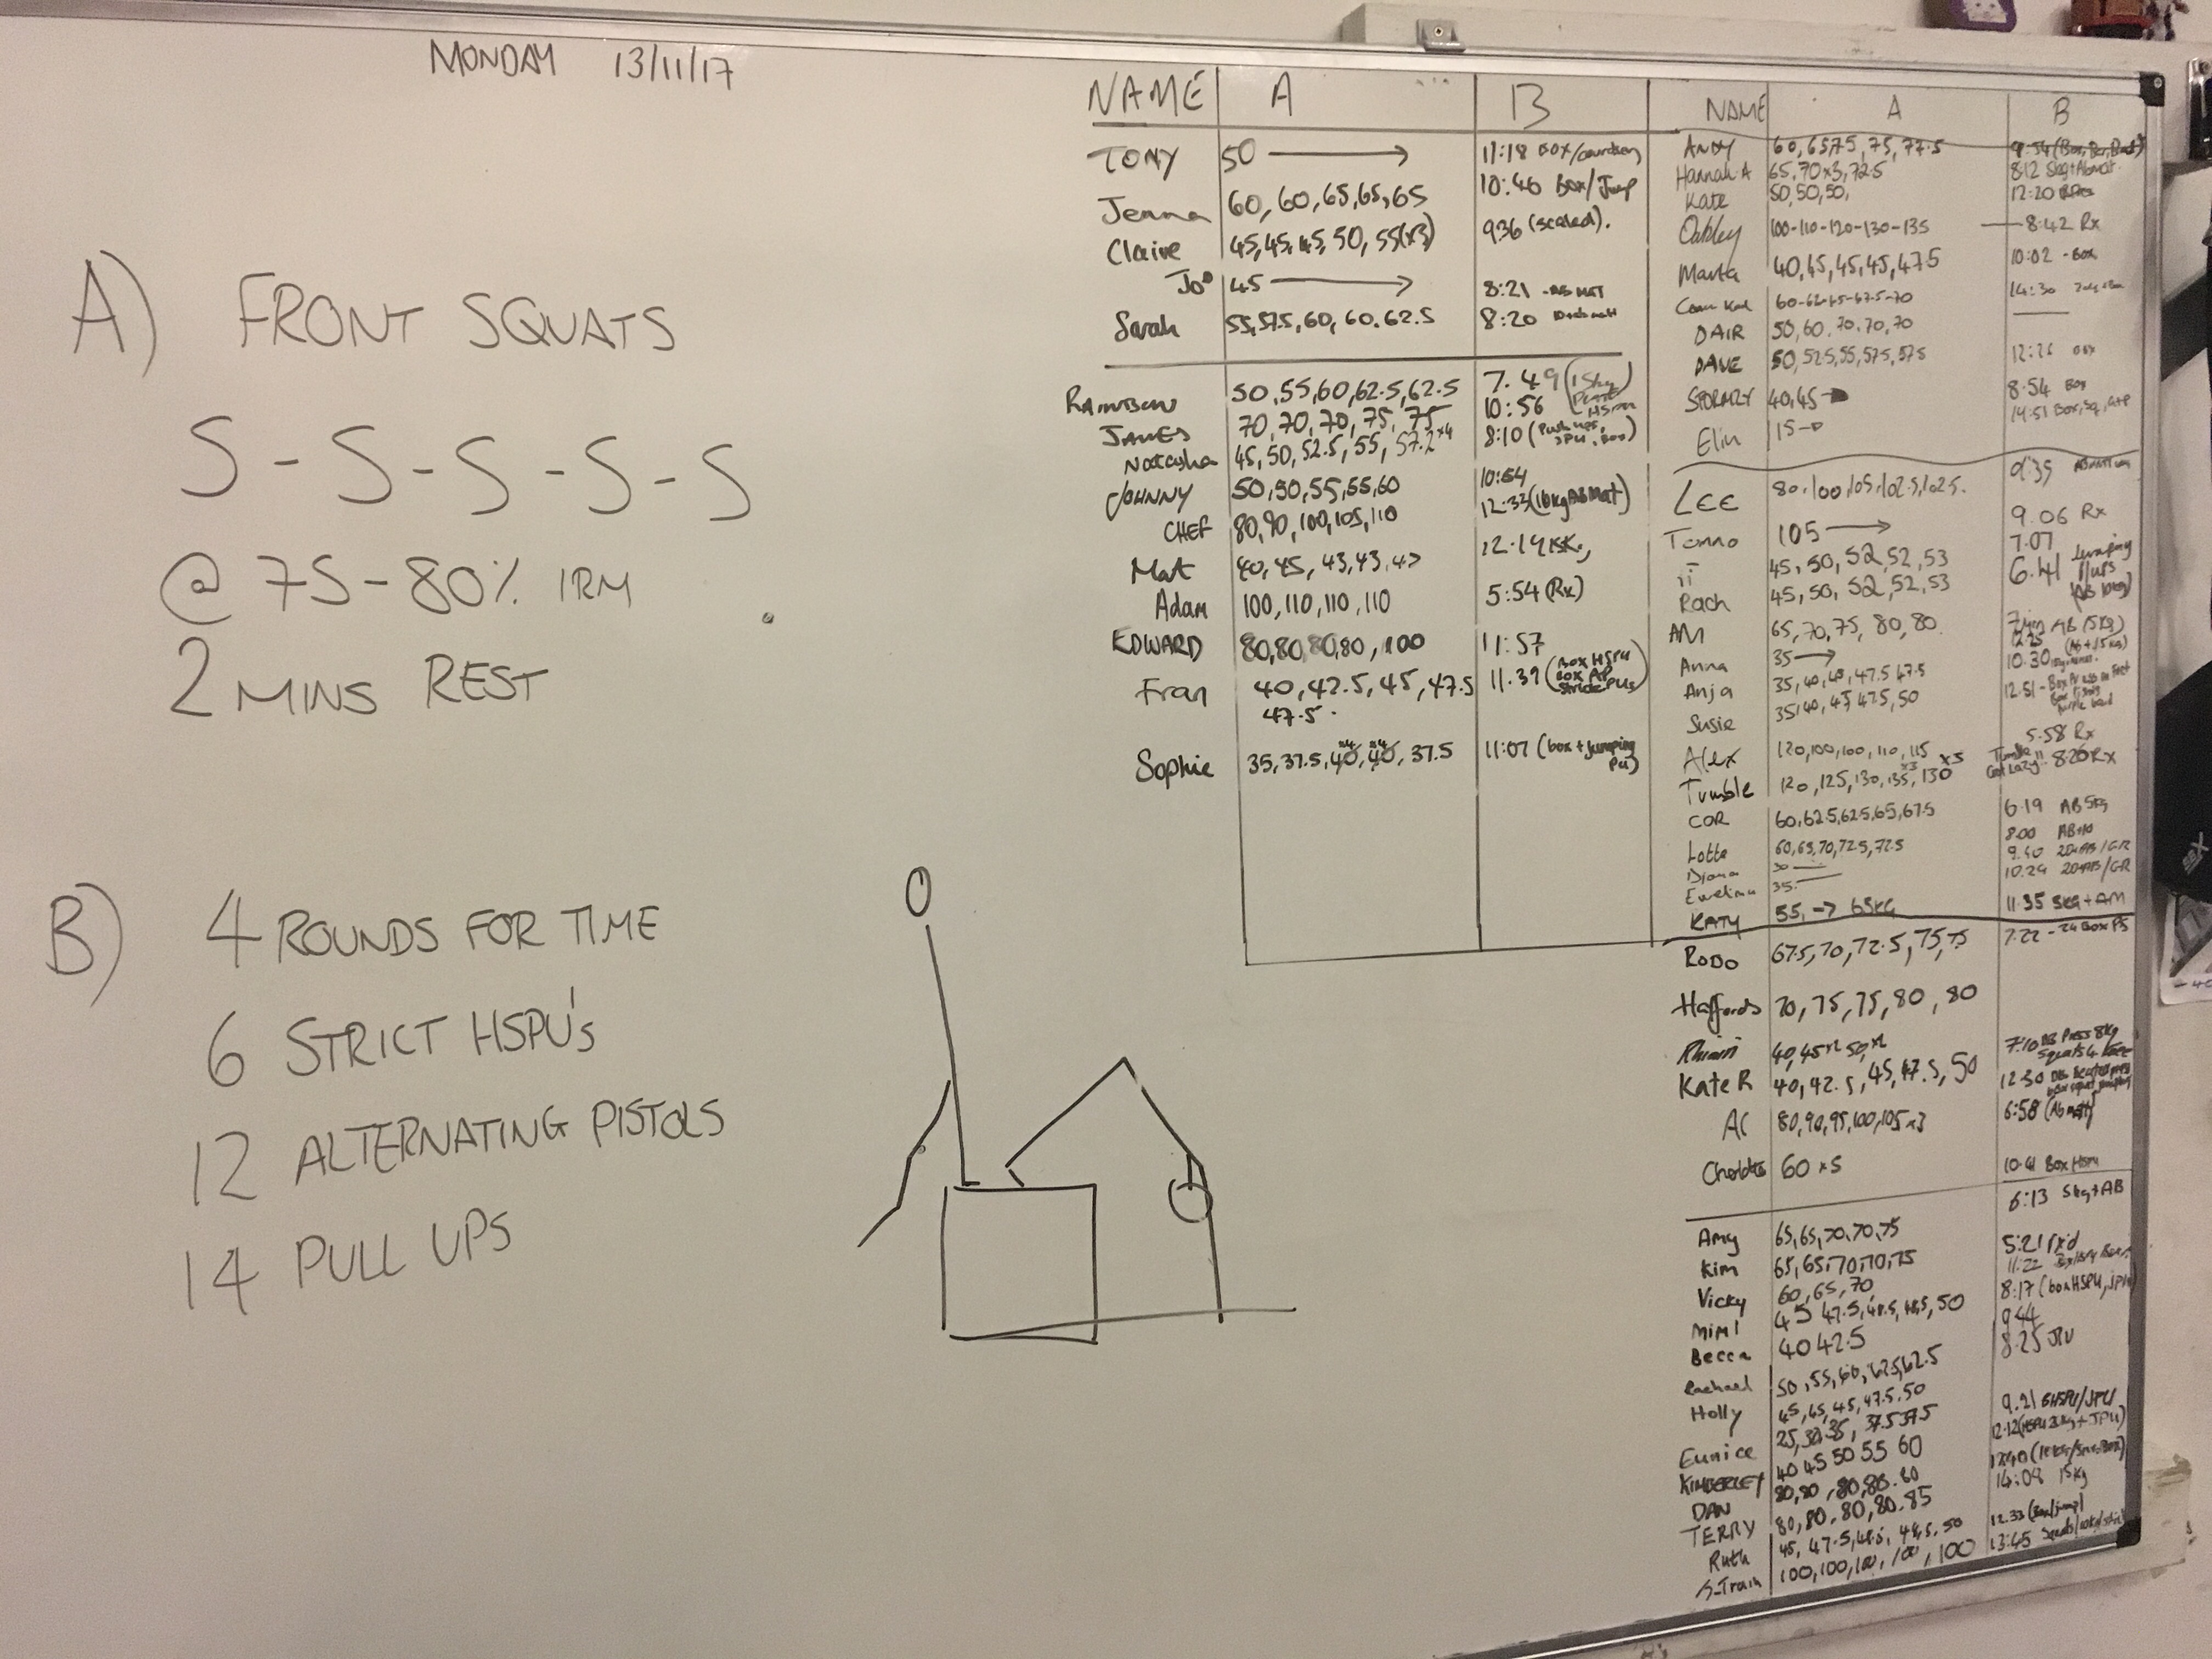 MONDAY 13/11/17
A) FRONT SQUATS
5-5-5-5-5
@ 75-80% 1RM
2 MINS REST
B) 4 ROUNDS FOR TIME
6 STRICT HSPU's
12 ALTERNATING PISTOLS
14 PULL UPS
NAME A B
TONY 50 → 11:18 BOX/
Jenna 60, 60, 65, 65, 65 10:46 Box/Jump
Claire 45, 45, 45, 50, 55(x3) 936 (scaled).
Jo 45 → 8:21 - AB MAT
Sarah 55, 57.5, 60, 60. 62.5 8:20
RAINBOW 50, 55, 60, 62.5, 62.5 7.49 (15kg
JAMES 70, 70, 70, 75, 75 10:56 HSPU
Natasha 45, 50, 52.5, 55, 57.2 x4 8:10 (Push ups, JPU, Box)
JOHNNY 50, 50, 55, 55, 60 10:54
CHEF 80, 90, 100, 105, 110 12:33 (10kg AB Mat)
Mat 40, 45, 43, 43, 12.19
Adam 100, 110, 110, 110 5:54 (Rx)
EDWARD 80, 80, 80, 80, 100 11:57
Fran 40, 42.5, 45, 47.5 11.39 (Box HSPU
47.5.
Sophie 35, 37.5, 40 x4, 40 x4, 37.5 11:07 (box + jumping PU)
NAME A B
ANDY 60, 65, 75, 77.5
Hannah A 65, 70x3, 72.5 8:12
Kate 50, 50, 50, 12:20
Oakley 100-110-120-130-135 — 8:42 Rx
Marta 40, 45, 45, 45, 47.5 10:02 - Box
60-62-65-67.5-70 14:30
DAIR 50, 60. 70. 70, 70
DAVE 50, 52.5, 55, 57.5, 57.5 12:26 Box
40, 45 → 8:54 Box
Elin 15 → 14:51 Box, Sq,
LEE 80, 100, 105, 102.5, 102.5. 9:35
Tonno 105 → 9.06 Rx
45, 50, 52, 52, 53 7.07
Rach 45, 50, 52, 52, 53 6.41 Jumping
AM 65, 70, 75, 80, 80. AB (5kg)
Anna 35 →
Anja 35, 40, 40, 47.5 47.5 10.30
Susie 35, 40, 45 47.5, 50 12:51 - Box
Alex 120, 100, 100, 110, 115 5:58 Rx
Tumble 120, 125, 130, 135 x3, 130 x5 Tumble "Got Lazy!!" 8:20 Rx
COR 60, 62.5, 62.5, 65, 67.5 6:19 AB 5kg
Lotte 60, 65, 70, 72.5, 72.5 8:00 AB+10
Diana 30 —
Ewelina 35. — 10.29
KATY 55, → 65kg 11.35 5kg + AM
RODO 67.5, 70, 72.5, 75, 75 7:22 - Box PS
Haffords 70, 75, 75, 80, 80
7:10 DB Press 8kg
Kate R 40, 42.5, 45, 47.5, 50 12:30
AC 80, 90, 95, 100, 105 x3 6:58 (Ab matt)
60 x5 10.41 Box HSPU
6:13 5kg + AB
Amy 65, 65, 70, 70, 75
Kim 65, 65, 70, 70, 75 5:21 rx'd
Vicky 60, 65, 70 11:22
Mimi 45 47.5, 48.5, 48.5, 50 8:17 (box HSPU, JPU)
Becca 40 42.5 9:44
Rachael 50, 55, 60, 62.5, 62.5 8:25 JPU
Holly 45, 45, 45, 47.5. 50
Eunice 25, 30, 35, 37.5 37.5 9.21 /JPU
KIMBERLEY 40 45 50 55 60 12:12 (HSPU + JPU)
DAN 80, 80, 80, 80. 80
TERRY 80, 80, 80, 80. 85 14:09 15kg
Ruth 45, 47.5, 48.5, 48.5. 50 12:33 (Box/jump)
S-Train 100, 100, 100, 100, 100 13:45